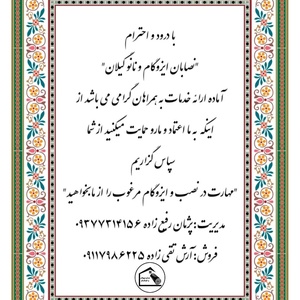 با درود و احترام
"نصابان ایزوگام و نانو گیلان"
آماده ارائه خدمات به همراهان گرامی می باشد از
اینکه به ما اعتماد و مارو حمایت میکنید از شما
سپاس گزاریم
"مهارت در نصب و ایزوگام مرغوب را از ما بخواهید"
مدیریت: پژمان رفیع زاده ۰۹۳۷۷۳۱۴۱۵۶
فروش: آرش تقی زاده ۰۹۱۱۷۹۸۶۲۲۵